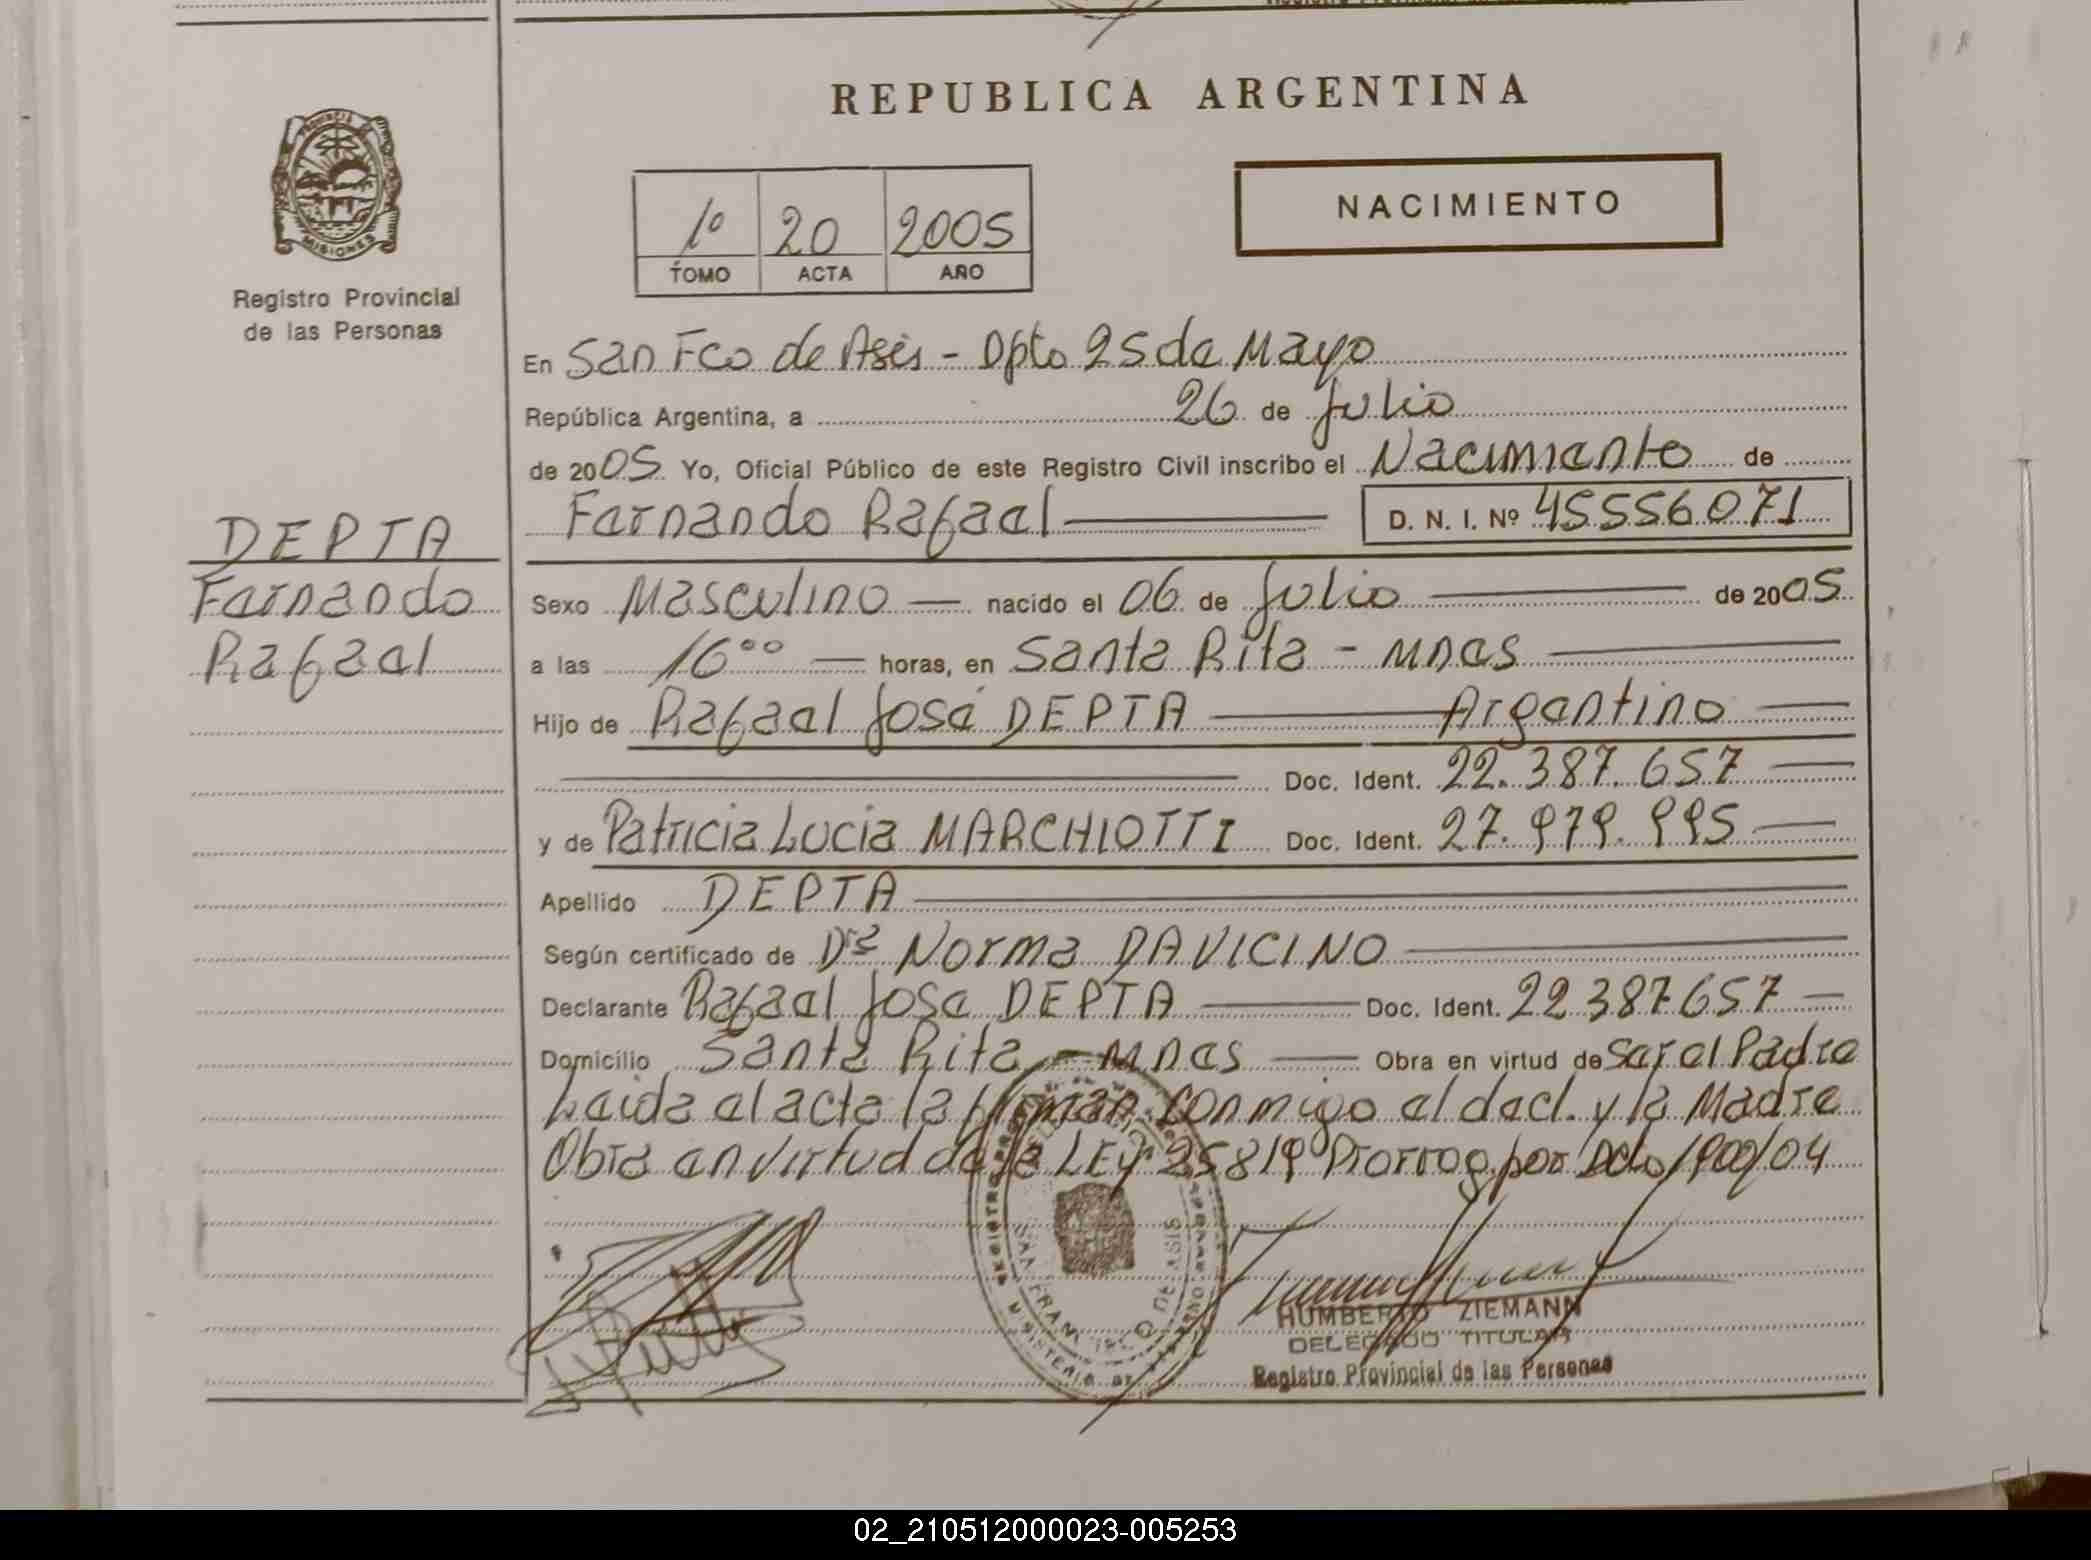 REPUBLICA ARGENTINA
PROVINCIA DE
MISIONES
Registro Provincial
de las Personas
1º 20 2005
TOMO ACTA AÑO
NACIMIENTO
En San Fco de Asis - Dpto 25 de Mayo
República Argentina, a 26 de Julio
de 2005 Yo, Oficial Público de este Registro Civil inscribo el Nacimiento de
Fernando Rafael D. N. I. Nº 45556071
DEPTA
Fernando
Rafael
Sexo Masculino nacido el 06 de Julio de 2005
a las 16 00 horas, en Santa Rita - Mnes
Hijo de Rafael José DEPTA Argentino
Doc. Ident. 22.387.657
y de Patricia Lucia MARCHIOTTI Doc. Ident. 27.979.995
Apellido DEPTA
Según certificado de Dra Norma DAVICINO
Declarante Rafael Jose DEPTA Doc. Ident. 22387657
Domicilio Santa Rita - Mnes Obra en virtud de Ser el Padre
Leida el acta la firman conmigo el decl. y la Madre
Obra en virtud de la LEY 25819 Prorrog. por Dcto 1900/04
SAN FRANCISCO DE ASIS
HUMBERTO ZIEMANN
DELEGADO TITULAR
Registro Provincial de las Personas
02_210512000023-005253